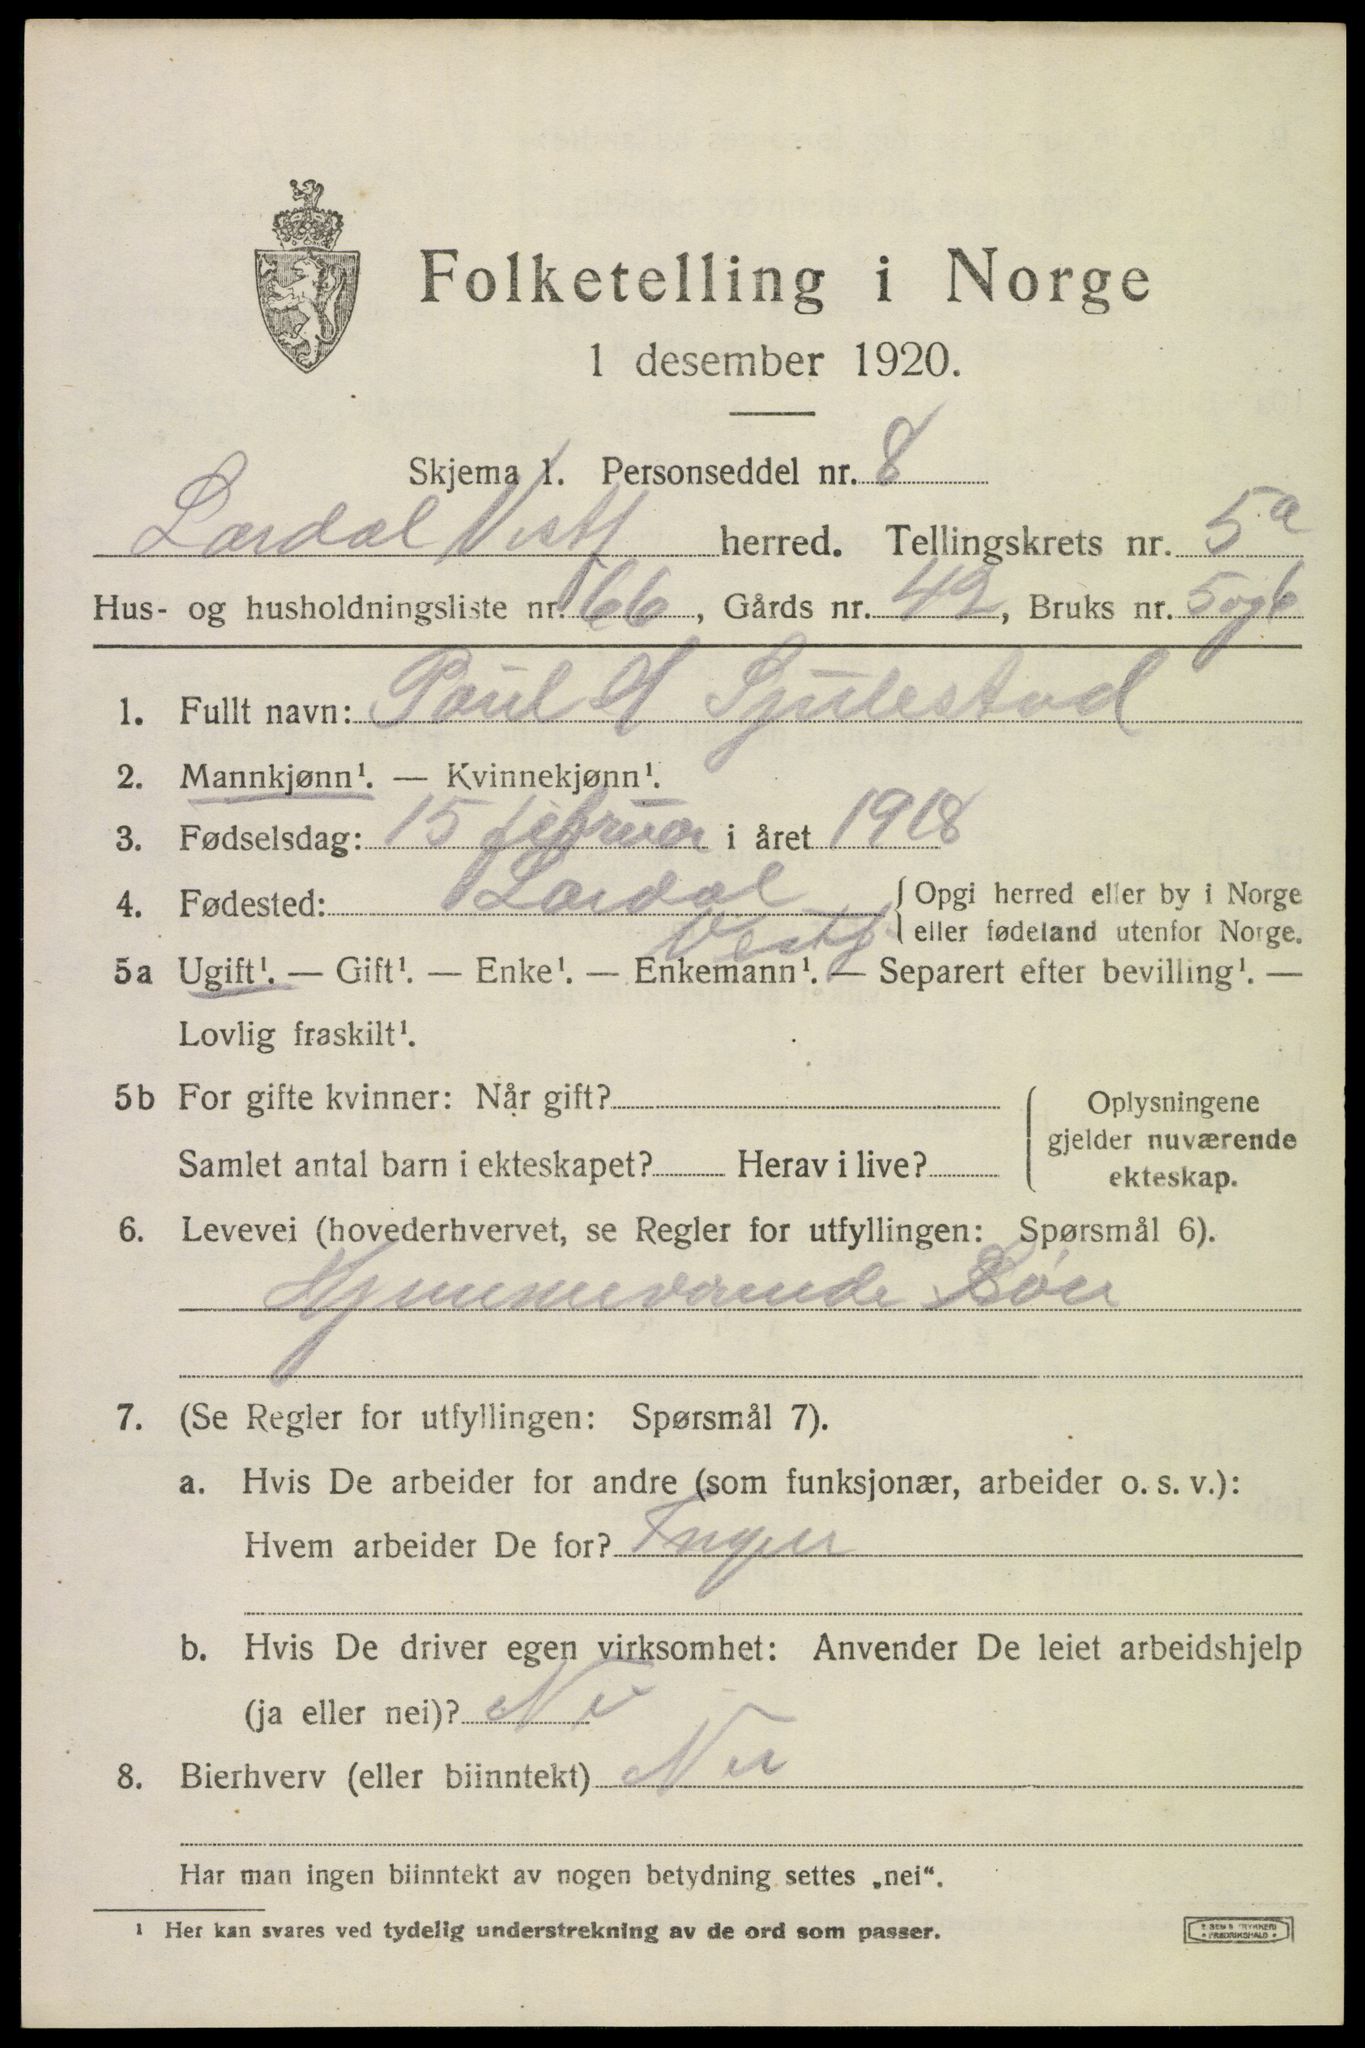 Folketelling i Norge
1 desember 1920.
Skjema 1. Personseddel nr. 8
Lardal Vestf herred. Tellingskrets nr. 5a
Hus- og husholdningsliste nr. 66, Gårds nr. 42, Bruks nr. 5 og 6
1. Fullt navn: Paul A Sjulestad
2. Mannkjønn¹. — Kvinnekjønn¹.
3. Fødselsdag: 15 februar i året 1918
4. Fødested: Lardal { Opgi herred eller by i Norge
Vestf. eller fødeland utenfor Norge.
5a Ugift¹. — Gift¹. — Enke¹. — Enkemann¹. — Separert efter bevilling¹. —
Lovlig fraskilt¹.
5b For gifte kvinner: Når gift? Oplysningene
gjelder nuværende
Samlet antal barn i ekteskapet? Herav i live? ekteskap.
6. Levevei (hovederhvervet, se Regler for utfyllingen: Spørsmål 6).
Hjemmeværende Søn
7. (Se Regler for utfyllingen: Spørsmål 7).
a. Hvis De arbeider for andre (som funksjonær, arbeider o. s. v.):
Hvem arbeider De for? Ingen
b. Hvis De driver egen virksomhet: Anvender De leiet arbeidshjelp
(ja eller nei)? Nei
8. Bierhverv (eller biinntekt) Nei
Har man ingen biinntekt av nogen betydning settes „nei“.
¹ Her kan svares ved tydelig understrekning av de ord som passer.
E SEM'S TRYKKERI
FREDRIKSHALD